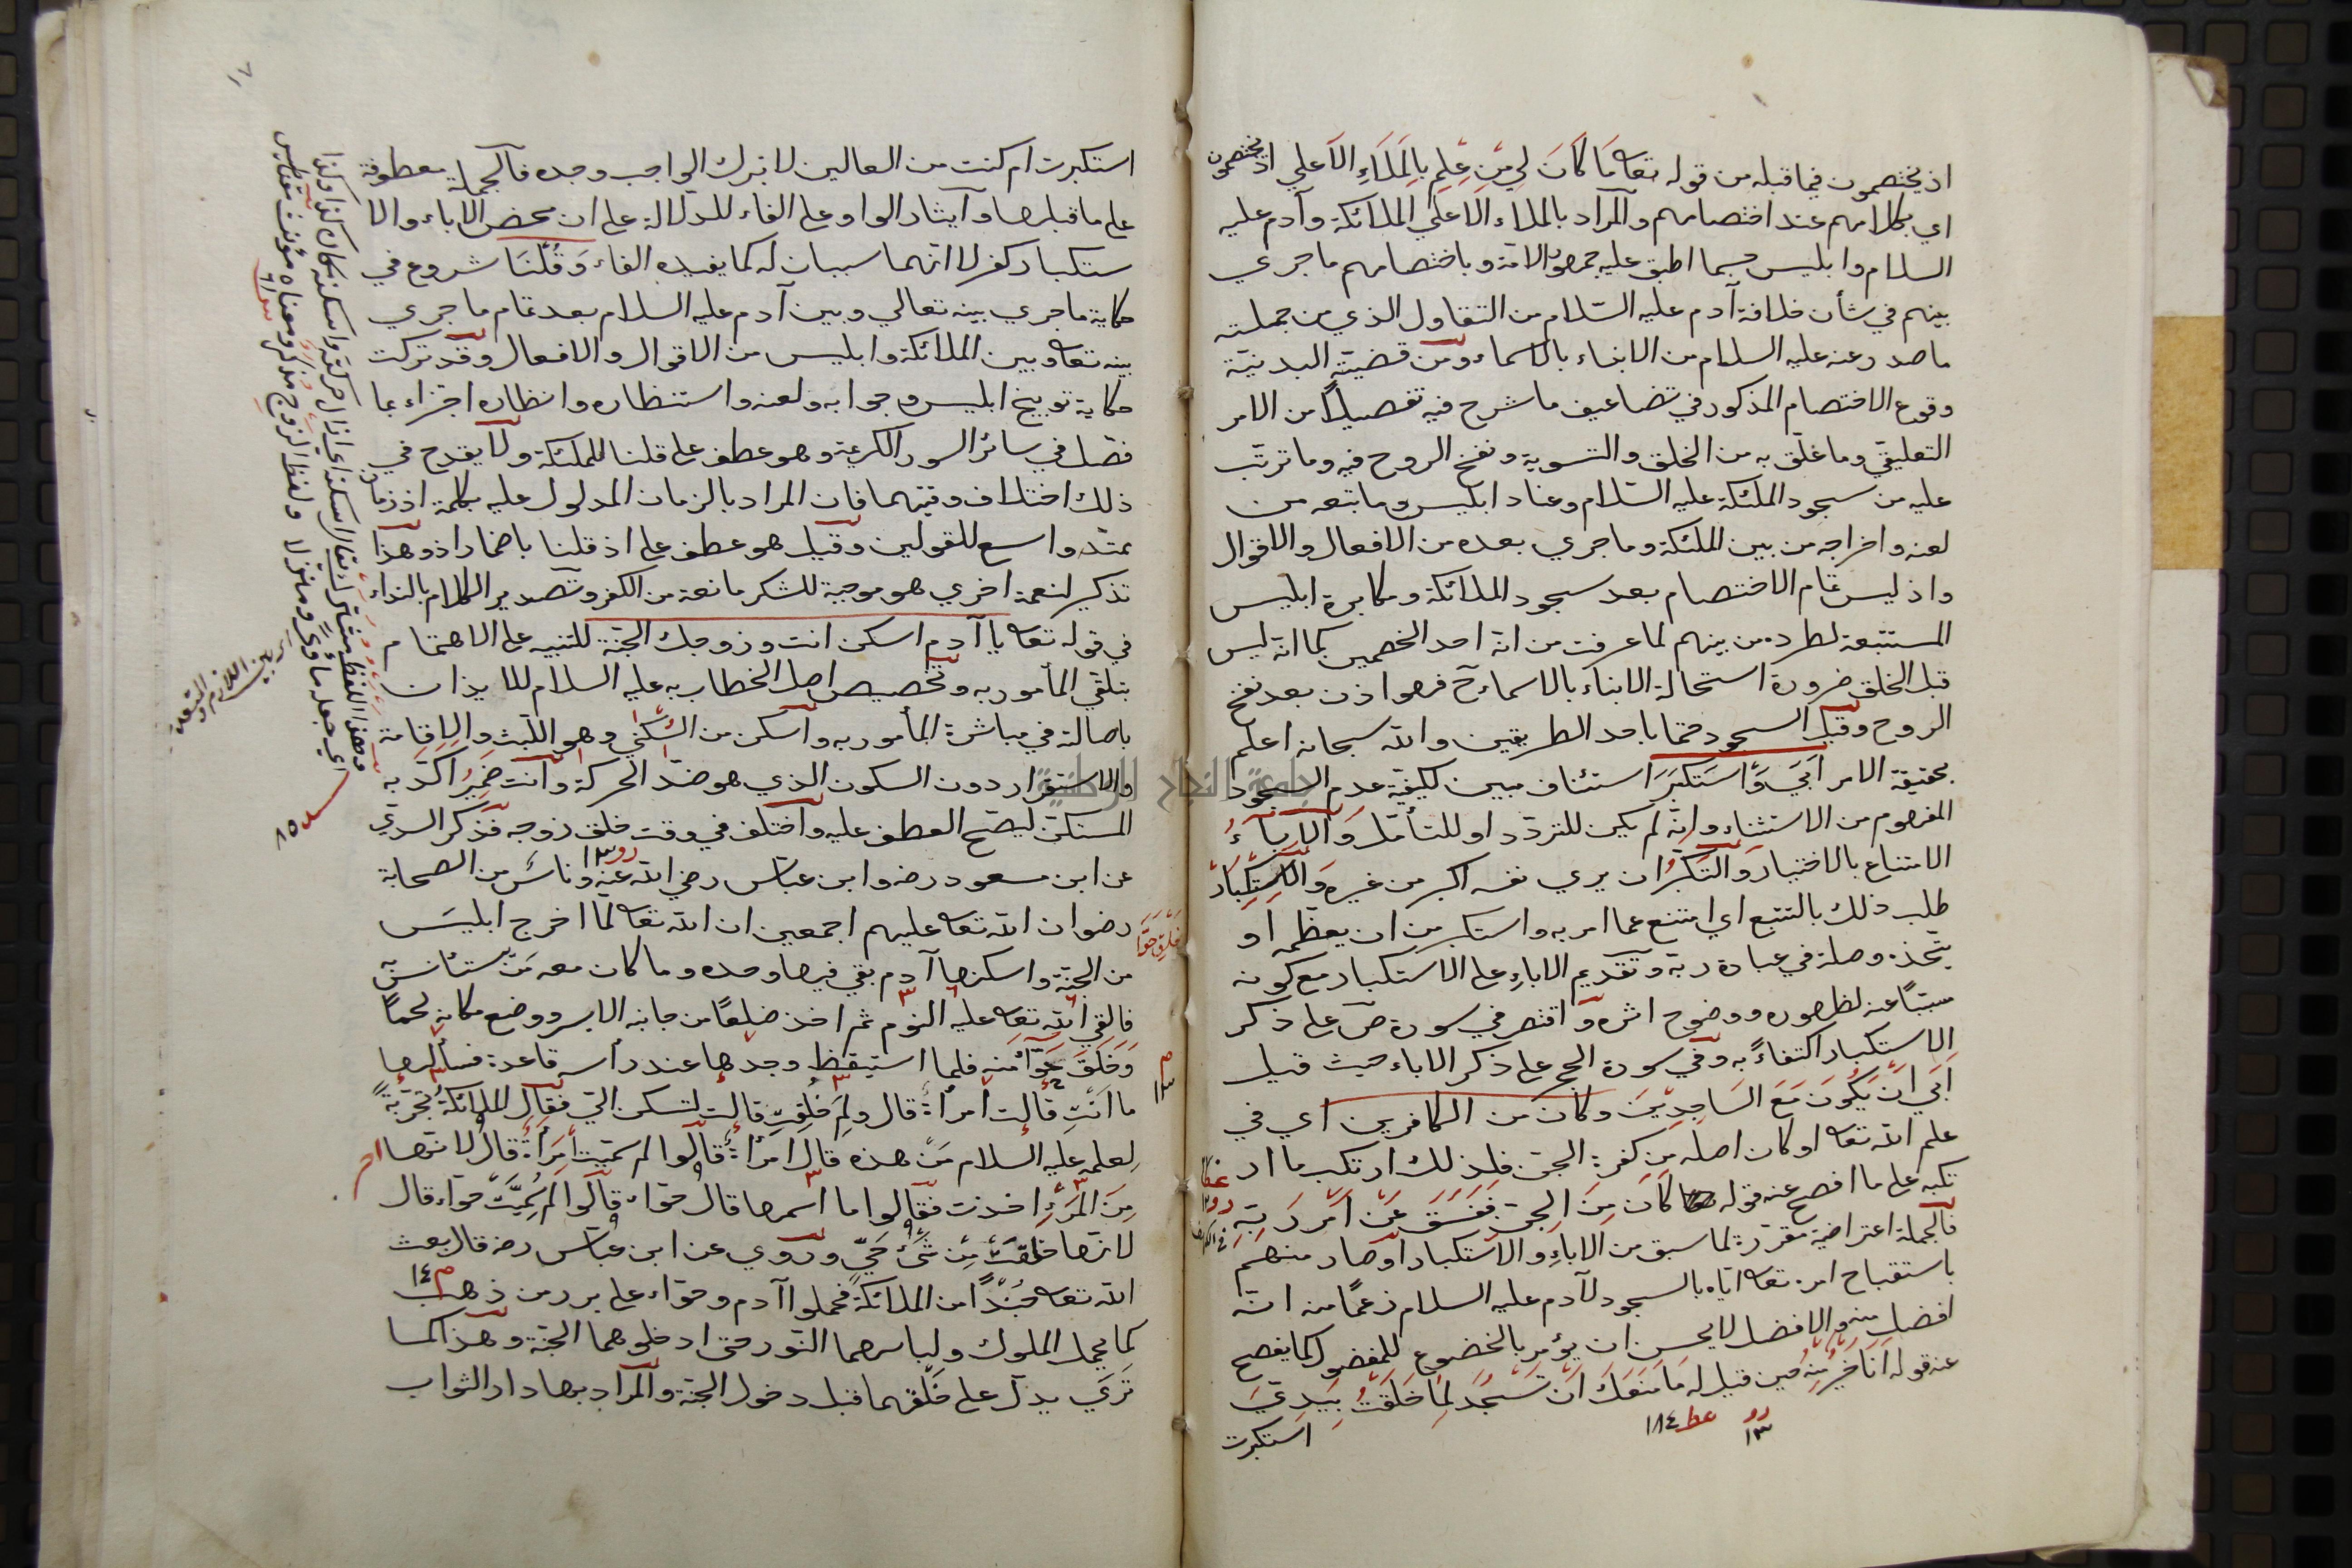 اذ يختصمون فيما قبله من قوله تعا ما كان لي من علم بالملاء الاعلي اذ يختصمون
اي بكلامهم عند اختصامهم والمراد بالملاء الاعلي الملائكة وآدم عليه
السلام وابليس حسبما اطبق عليه جمهور الامة وباختصامهم ما جري
بينهم في شأن خلافة آدم عليه السلام من التقاول الذي من جملته
ما صدر عنه عليه السلام من الانباء بالاسماء ومن قضية البدنية
وقوع الاختصام المذكور في تضاعيف ما شرح فيه تفصيلاً من الامر
التعليقي وما علق به من الخلق والتسوية ونفخ الروح فيه وما ترتب
عليه من سجود الملئكة عليه السلام وعناد ابليس وما تبعه من
لعنه واخراجه من بين الملئكة وما جري بعده من الافعال والاقوال
واذ ليس تمام الاختصام بعد سجود الملائكة ومكابرة ابليس
المستتبعة لطرده من بينهم لما عرفت من انه احد الخصمين كما انه ليس
قبل الخلق ضرورة استحالة الانباء بالاسماء ح فهو اذن بعد نفخ
الروح وقبل السجود حتما باحد الطريقين والله سبحانه اعلم
بحقيقة الامر ابي واستكبر استئناف مبين لكيفية عدم السجود
المفهوم من الاستثناء وانه لم يكن للتردد او للتأمل والاباء
الامتناع بالاختيار والتكبر ان يري نفسه اكبر من غيره والاستكبار
طلب ذلك بالتشبع اي امتنع عما امر به واستكبر من ان يعظمه او
يتخذه وصلة في عبادة ربه وتقديم الاباء علي الاستكبار مع كونه
مسببًا عنه لظهوره ووضوح اثره واقتصر في سورة ص علي ذكر
الاستكبار اكتفاءً به وفي سورة الحجر علي ذكر الاباء حيث قيل
ابي ان يكون مع الساجدين وكان من الكافرين اي في
علم الله تعا او كان اصله من كفرة الجن فلذلك ارتكب ما ار
تكبه علي ما افصح عنه قوله تعا كان من الجن ففسق عن امر ربه
فالجملة اعتراضية مقررة لما سبق من الاباء والاستكبار او صار منهم
باستقباح امره تعا اياه بالسجود لآدم عليه السلام زعمًا منه انه
افضل منه والافضل لا يحسن ان يؤمر بالخضوع للمفضول كما يفصح
عنه قوله انا خير منه حين قيل له ما منعك ان تسجد لما خلقت بيدي
استكبرت
١٧
استكبرت ام كنت من العالين لا بترك الواجب وحده فالجملة معطوفة
علي ما قبلها وايثار الواو علي الفاء للدلالة علي ان محض الاباء والا
ستكبار كفر لا انهما سببان له كما يفيده الفاء وقلنا شروع في
حكاية ما جري بينه تعالي وبين آدم عليه السلام بعد تمام ما جري
بينه تعا وبين الملائكة وابليس من الاقوال والافعال وقد تركت
حكاية توبيخ ابليس وجوابه ولعنه واستنظاره وانظاره اجتزاء بما
فصل في سائر السور الكريمة وهو عطف علي قلنا للملئكة ولا يقدح في
ذلك اختلاف وقتيهما فان المراد بالزمان المدلول عليه بكلمة اذ زمان
ممتد واسع للقولين وقيل هو عطف علي اذ قلنا باضمار اذ وهذا
تذكير لنعمة اخري هو موجبة للشكر مانعة من الكفر وتصدير الكلام بالنداء
في قوله تعا يا آدم اسكن انت وزوجك الجنة للتنبيه علي الاهتمام
بتلقي المأمور به وتخصيص اصل الخطاب به عليه السلام للايذان
باصالته في مباشرة المأمور به واسكن من السكني وهو اللبث والاقامة
والاستقرار دون السكون الذي هو ضد الحركة وانت ضمير اكد به
المستكن ليصح العطف عليه واختلف في وقت خلق زوجه فذكر السدي
عن ابن مسعود رضه وابن عباس رضي الله عنه وناس من الصحابة
رضوان الله تعا عليهم اجمعين ان الله تعا لما اخرج ابليس
من الجنة واسكنها آدم بقي فيها وحده وما كان معه من يستأنس به
فالقي الله تعا عليه النوم ثم اخذ ضلعًا من جانبه الايسر ووضع مكانه لحمًا
وخلق حوا منه فلما استيقظ وجدها عند رأسه قاعدة فسألها
ما انت قالت امرأة قال ولم خلقت قالت لتسكن الي فقال الملائكة تجربة
لعلمه عليه السلام من هذه قال امرأة قالوا لم سميت امرأة قال لانها
من المرء اخذت فقالوا ما اسمها قال حواء قالوا لم سميت حواء قال
لانها خلقت من شئ حي وروي عن ابن عباس رضه قال بعث
الله تعا جندًا من الملائكة فحملوا آدم وحواء علي سرر من ذهب
كما يحمل الملوك ولباسهما النور حتي ادخلوهما الجنة وهذا كما
تري يدل علي خلقهما قبل دخول الجنة والمراد بها دار الثواب